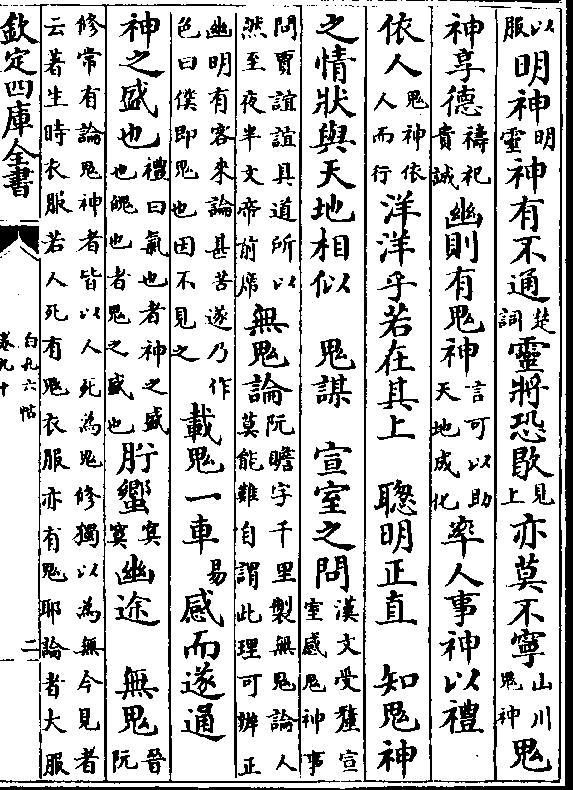 以服明神明靈神有不通楚詞靈將恐歇見上亦莫不寧山川鬼神鬼
神享德禱祀貴誠幽則有鬼神言可以助天地成化率人事神以禮
依人鬼神依人而行洋洋乎若在其上　聰明正直　知鬼神
之情狀與天地相似　鬼謀　宣室之問漢文受釐宣室感鬼神事
問賈誼誼具道所以然至夜半文帝前席無鬼論阮瞻字千里製無鬼論人莫能難自謂此理可辨正
幽明有客來論甚苦遂乃作色曰僕即鬼也因不見之載鬼一車易感而遂通
神之盛也禮曰氣也者神之盛也魄也者鬼之盛也肸蠁冥寞幽途　無鬼晉阮
修常有論鬼神者皆以人死為鬼修獨以為無今見者云著生時衣服若人死有鬼衣服亦有鬼耶論者大服
欽定四庫全書
白孔六帖
卷九十
二